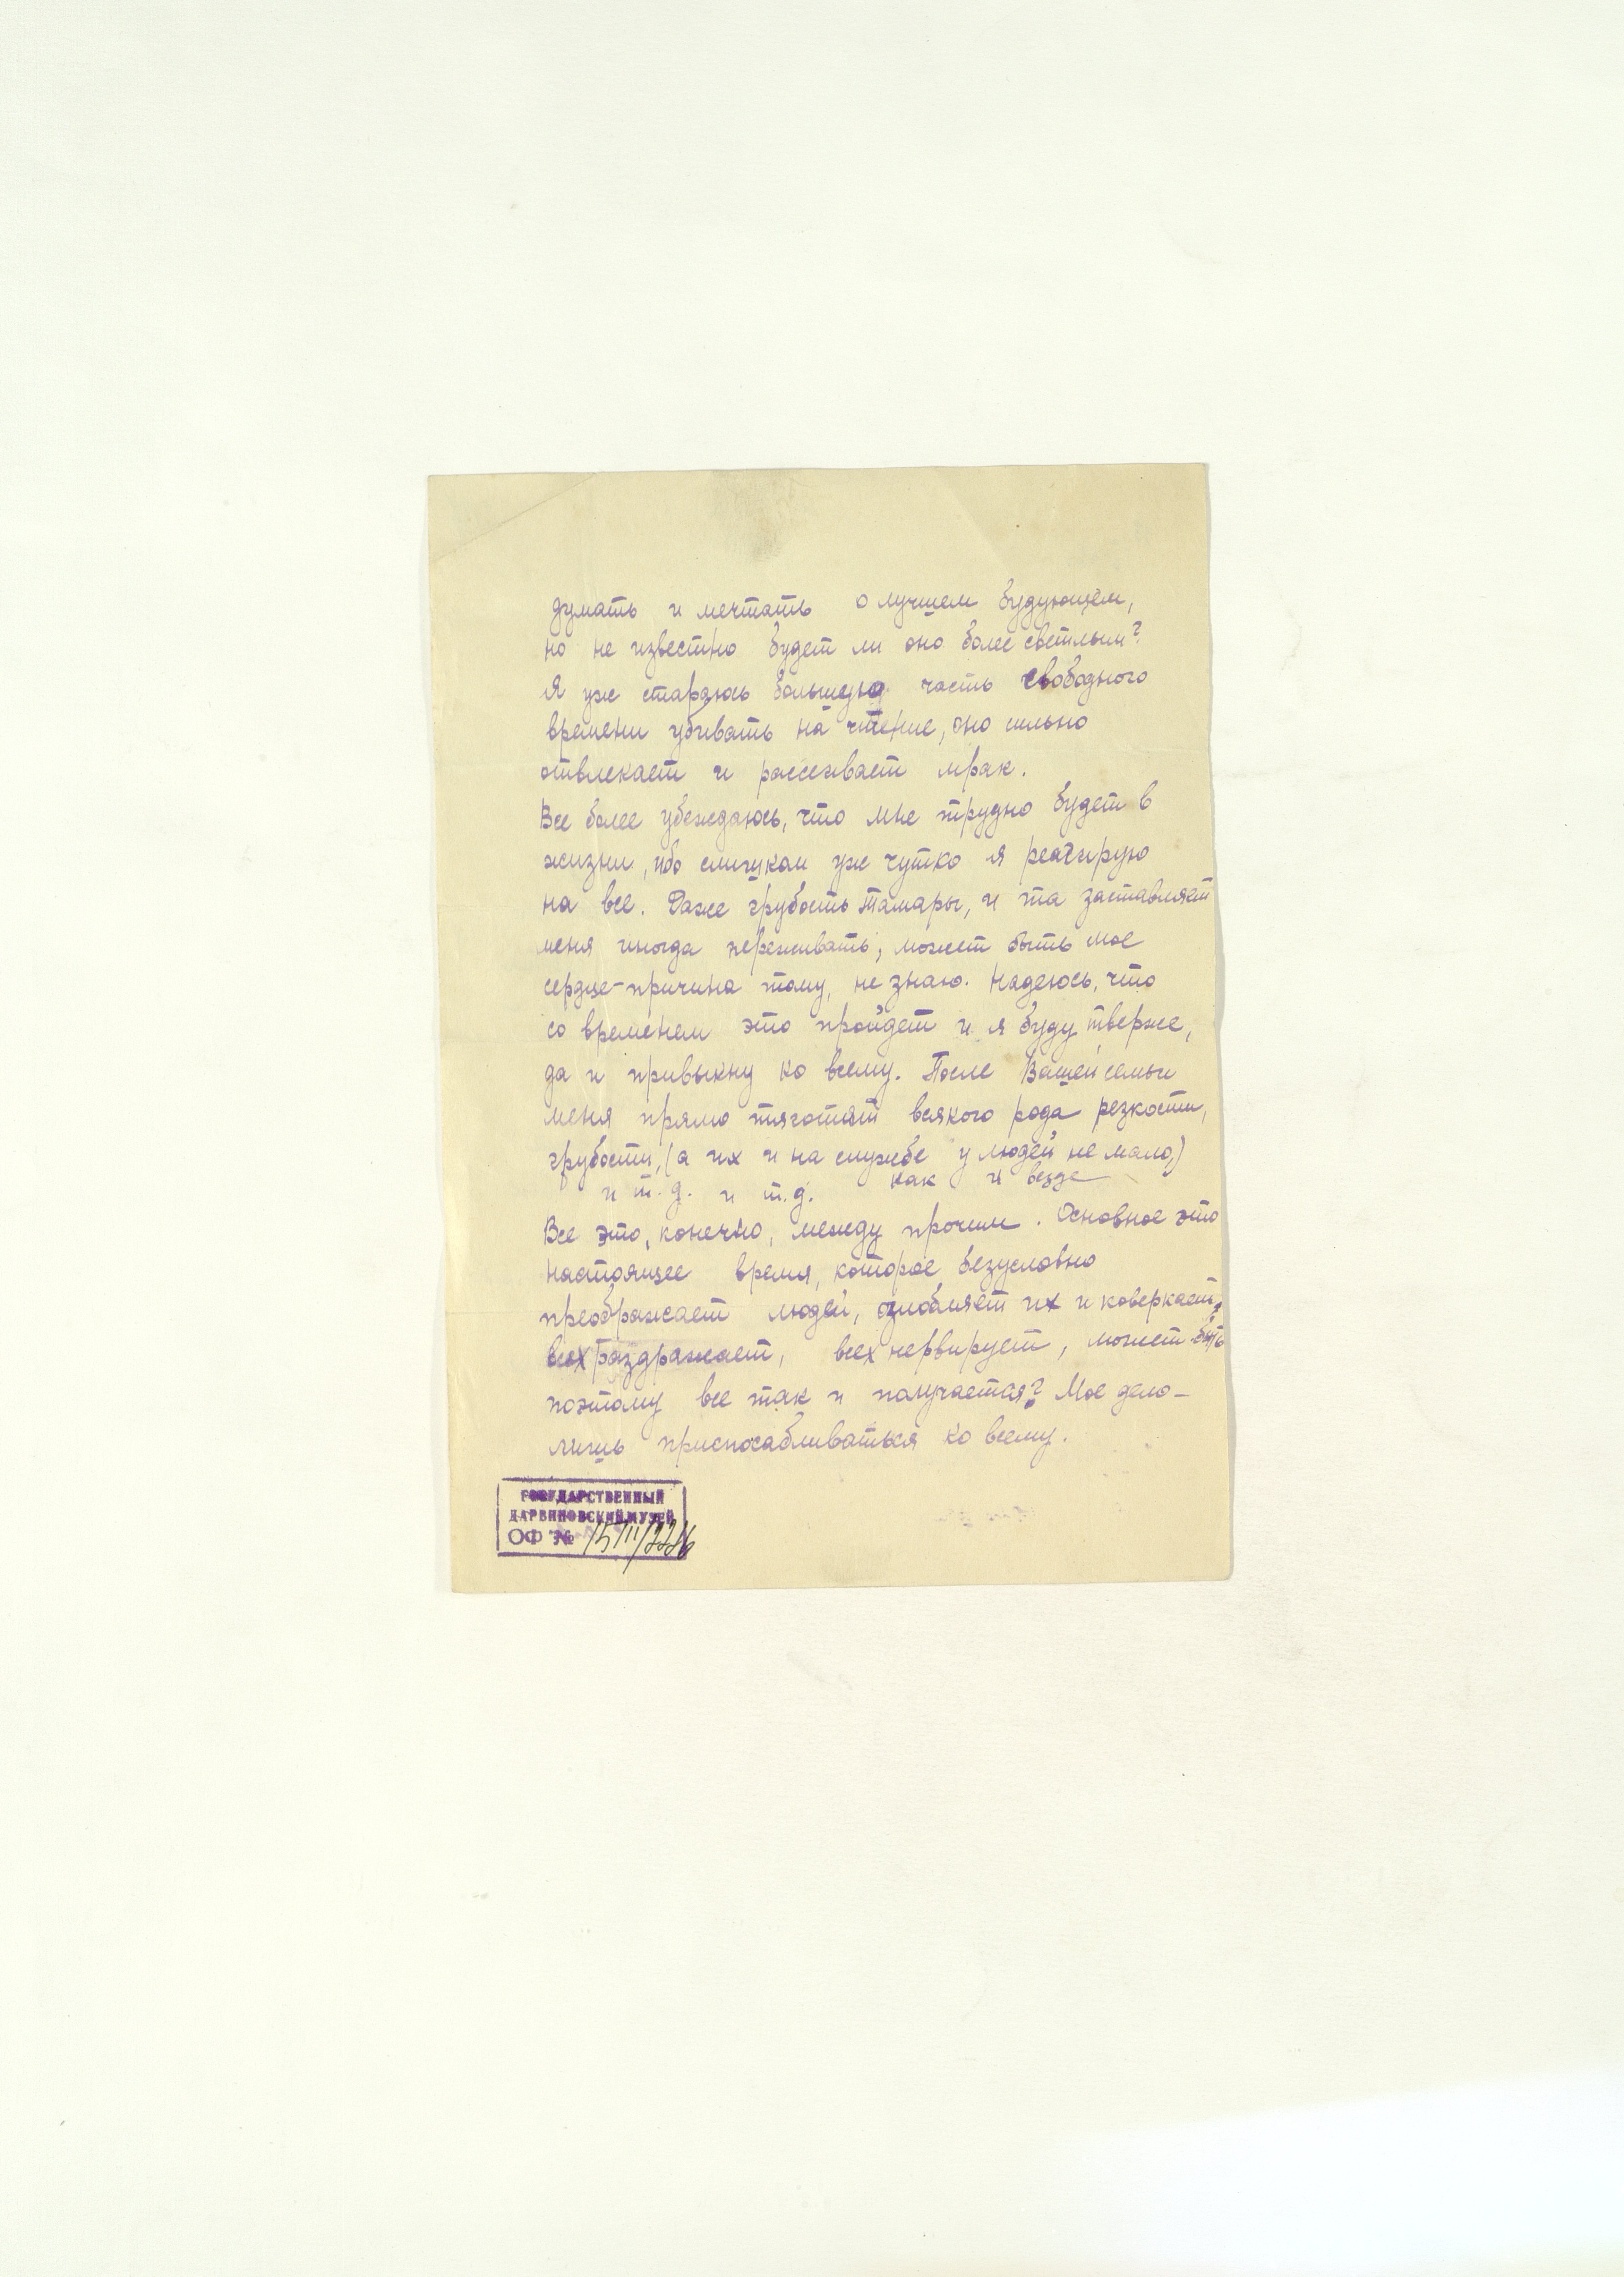 думать и мечтать о лучшем будующем,
но не известно будет ли оно более светлым?
Я уже стараюсь большую часть свободного
времени убивать на чтение, оно сильно
отвлекает и рассеивает мрак.
Все более убеждаюсь, что мне трудно будет в
жизни, ибо слишком уж чутко я реагирую
на все. Даже грубость Тамары, и та заставляет
меня иногда переживать, может быть мое
сердце-причина тому, не знаю. Надеюсь, что
со временем это пройдет и я буду тверже,
да и привыкну ко всему. После Вашей семьи
меня прямо тяготят всякого рода резкости,
грубости, (а их и на службе у людей не мало,)
и т.д. и т.д. как и везде
Все это, конечно, между прочим. Основное это
настоящее время, которое безусловно
преображает людей, озлобляет их и коверкает,
всех раздражает, всех нервирует, может быть
поэтому все так и получается? Мое дело-
лишь приспосабливаться ко всему.
ГОСУДАРСТВЕННЫЙ
ДАРВИНОВСКИЙ МУЗЕЙ
ОФ №